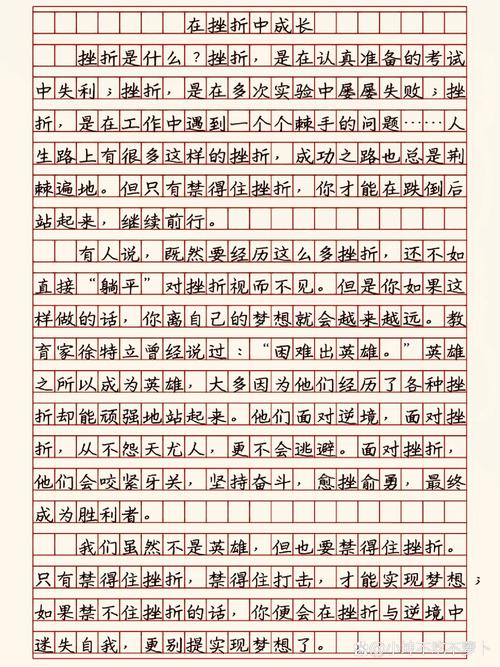 在挫折中成长
挫折是什么？挫折，是在认真准备的考试
中失利；挫折，是在多次实验中屡屡失败；挫
折，是在工作中遇到一个个棘手的问题……人
生路上有很多这样的挫折，成功之路也总是荆
棘遍地。但只有禁得住挫折，你才能在跌倒后
站起来，继续前行。
有人说，既然要经历这么多挫折，还不如
直接“躺平”对挫折视而不见。但是你如果这
样做的话，你离自己的梦想就会越来越远。教
育家徐特立曾经说过：“困难出英雄。”英雄
之所以成为英雄，大多因为他们经历了各种挫
折却能顽强地站起来。他们面对逆境，面对挫
折，从不怨天尤人，更不会逃避。面对挫折，
他们会咬紧牙关，坚持奋斗，愈挫俞勇，最终
成为胜利者。
我们虽然不是英雄，但也要禁得住挫折。
只有禁得住挫折，禁得住打击，才能实现梦想；
如果禁不住挫折的话，你便会在挫折与逆境中
迷失自我，更别提实现梦想了。